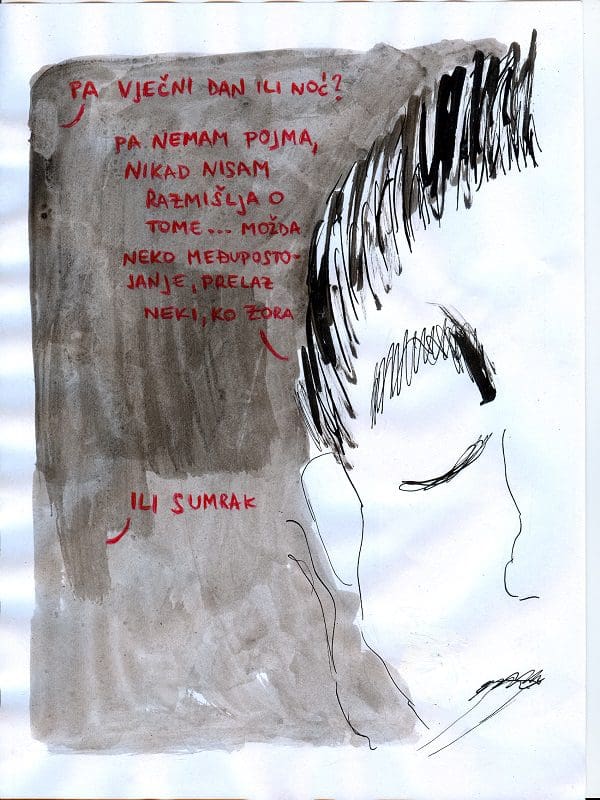 PA VJEČNI DAN ILI NOĆ?
PA NEMAM POJMA,
NIKAD NISAM
RAZMIŠLJA O
TOME... MOŽDA
NEKO MEĐUPOSTO-
JANJE, PRELAZ
NEKI, KO ZORA
ILI SUMRAK